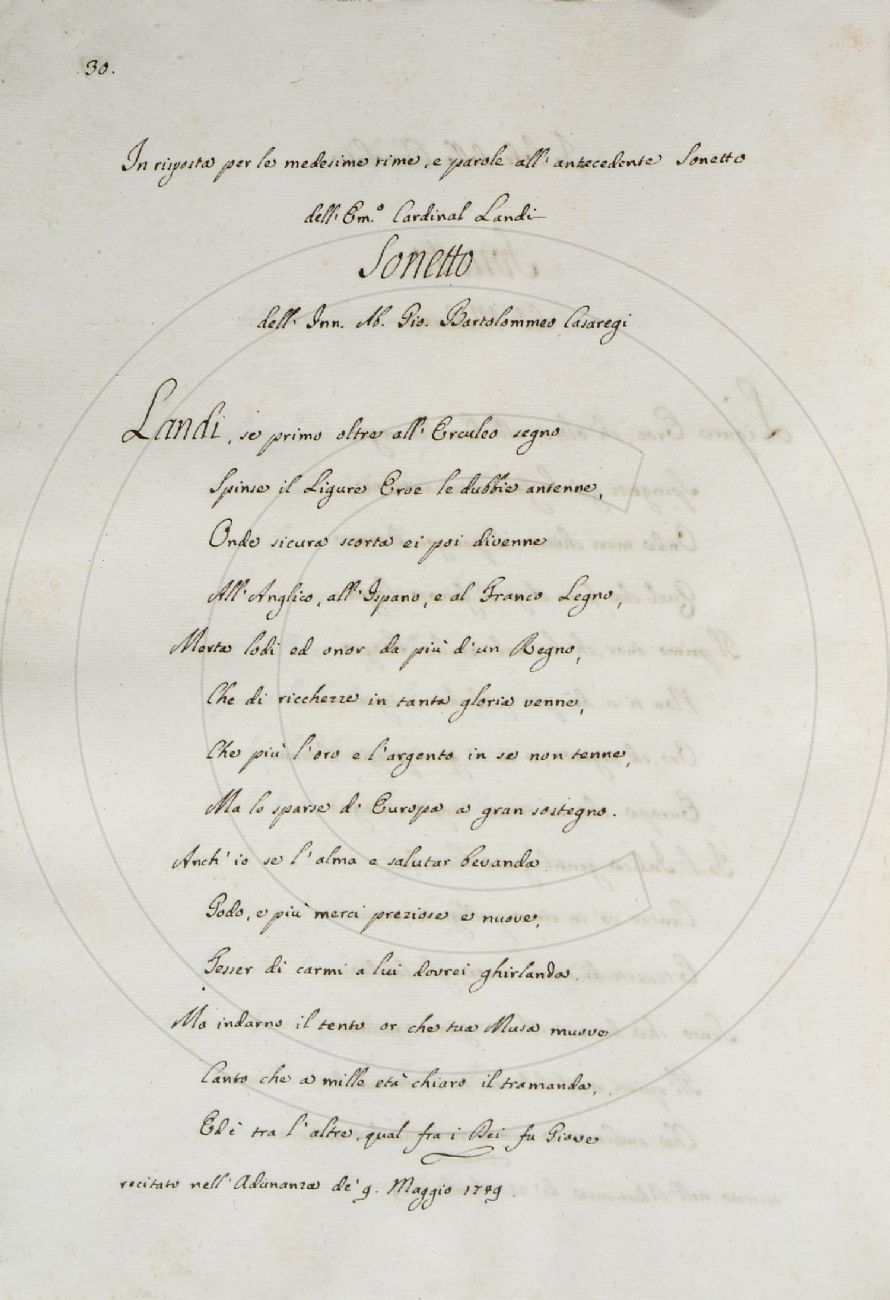 30.
In risposta per le medesime rime, e parole all' antecedente Sonetto
dell' Em.º Cardinal Landi
Sonetto
dell' Inn. Ab. Gio. Bartolommeo Casaregi
Landi, se primo oltre all' Erculeo segno
Spinse il Ligure Eroe le dubbie antenne,
Onde sicura scorta ei poi divenne
All' Anglico, all' Ispano, e al Franco Legno,
Merta lodi ed onor da più d' un Regno,
Che di ricchezze in tanta gloria venne,
Che più l' oro e l' argento in se non tenne,
Ma lo sparse d' Europa a gran sostegno.
Anch' io se l' alma e salutar bevanda
Godo, e più merci preziose e nuove,
Tesser di carmi a lui dovrei ghirlanda.
Ma indarno il tento or che tua Musa muove
Canto che a mille età chiaro il tramanda,
Ed è tra l' altre, qual fra i Dei fu Giove
recitato nell' Adunanza de' 9. Maggio 1749.